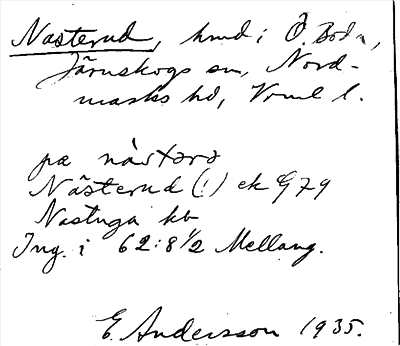 Nasterud, hmd i Ö. Boda,
Järnskogs sn, Nord-
marks hd, Vrml l.
på nàstərə
Nästerud (!) ek G 79
Nastuga kb
Ing. i 62:8½ Mellang.
E. Andersson 1935.